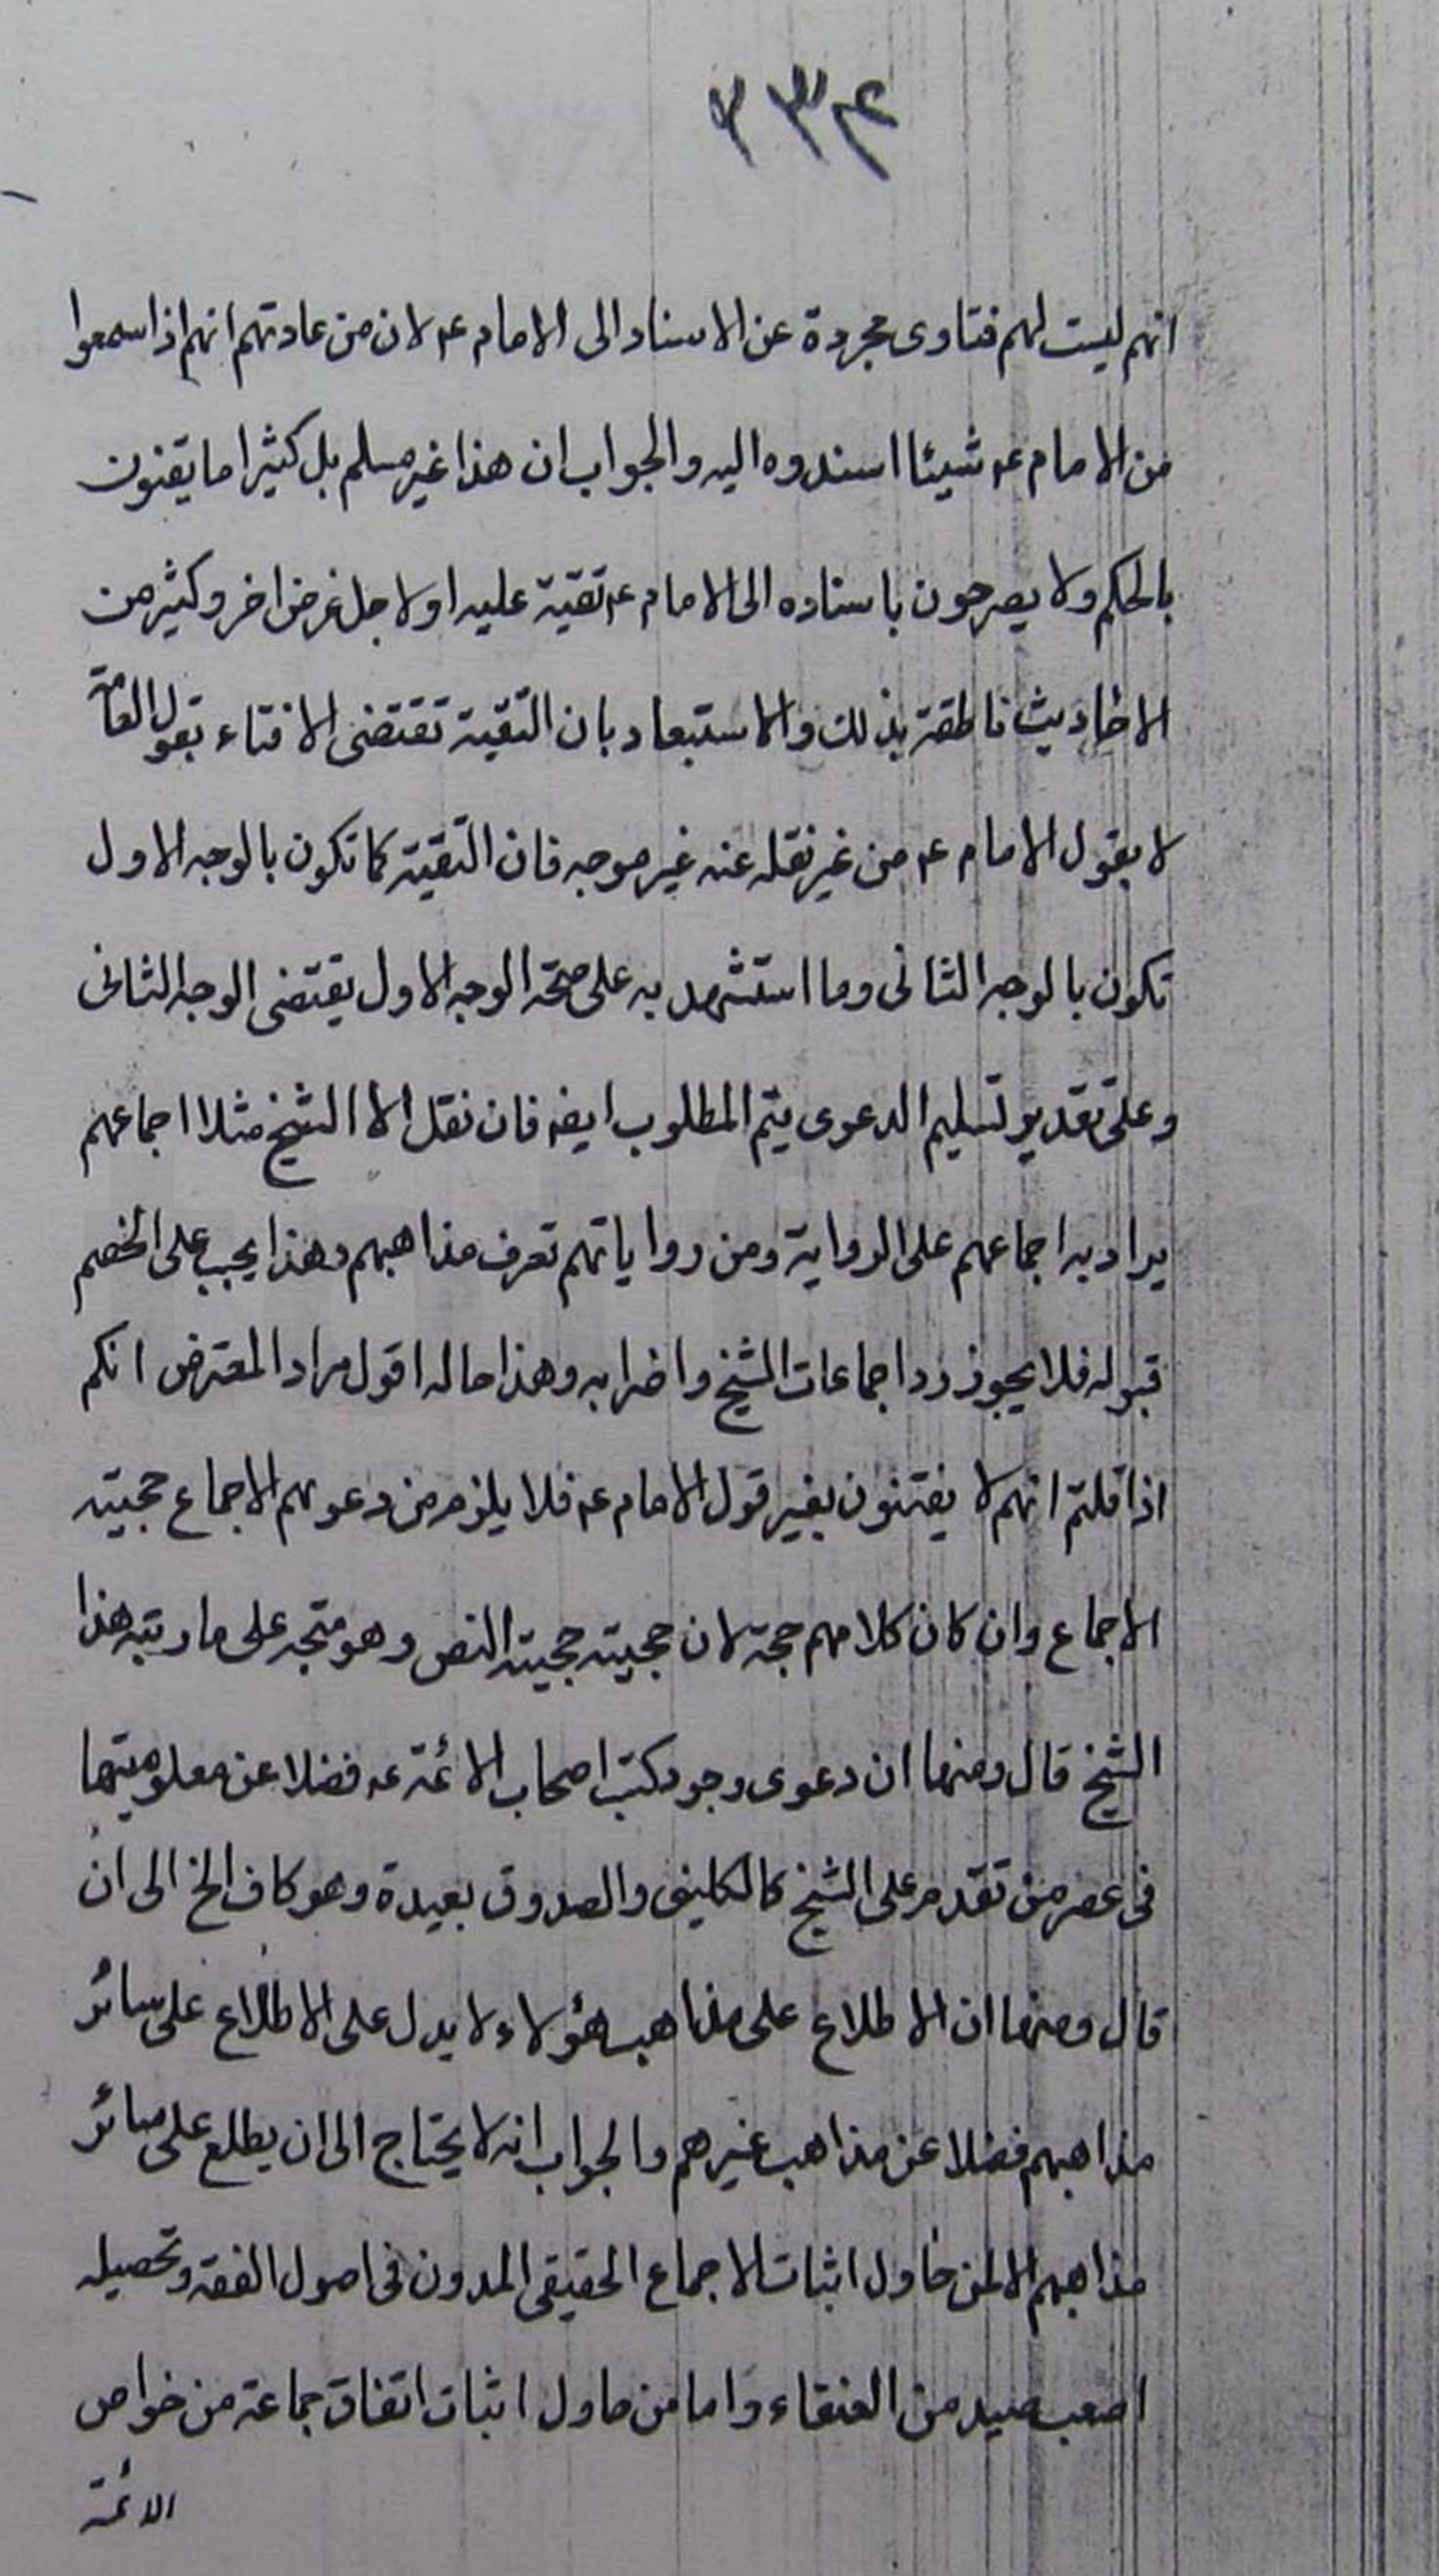 ٣٣٤
انهم ليست لهم فتاوى مجردة عن الاسناد الى الامام ع لان من عادتهم انهم اذا سمعوا
من الامام ع شيئا اسندوه اليه والجواب ان هذا غير مسلم بل كثيرا ما يفتون
بالحكم ولا يصرحون باسناده الى الامام ع تقية عليه او لاجل غرض اخر وكثير من
الاحاديث ناطقة بذلك والاستبعاد بان التقية تقتضى الافتاء بقول العامة
لا بقول الامام ع من غير نقله عنه غير موجه فان التقية كما تكون بالوجه الاول
تكون بالوجه الثانى وما استشهد به على صحة الوجه الاول يقتضى الوجه الثانى
وعلى تقدير تسليم الدعوى يتم المطلوب ايضا فان نقل الا الشيخ مثلا اجماعهم
يراد به اجماعهم على الرواية ومن رواياتهم تعرف مذاهبهم وهذا يجب على الخصم
قبوله فلا يجوز رد اجماعات الشيخ واضرابه وهذا حاله اقول مراد المعترض انكم
اذا قلتم انهم لا يفتون بغير قول الامام ع فلا يلزم من دعويهم الاجماع حجيته
الاجماع وان كان كلامهم حجة لان حجيته حجية النص وهو متجه على ما رتبه هذا
الشيخ قال ومنها ان دعوى وجود كتب اصحاب الائمة ع فضلا عن معلوميتها
فى عصر من تقدم على الشيخ كالكلينى والصدوق بعيدة وهو كاف الخ الى ان
قال ومنها ان الاطلاع على مذاهب هؤلاء لا يدل على الاطلاع على سائر
مذاهبهم فضلا عن مذاهب غيرهم والجواب انه لا يحتاج الى ان يطلع على سائر
مذاهبهم الا لمن حاول اثبات الاجماع الحقيقى المدون فى اصول الفقه وتحصيله
اصعب صيد من العنقاء واما من حاول اثبات اتفاق جماعة من خواص
الائمة